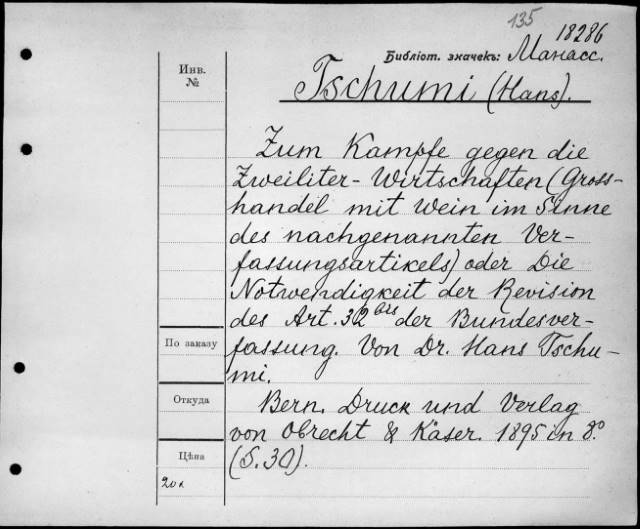 135
18286
Библіот. значекъ: Манасс.
Инв.
№
Tschumi (Hans).
Zum Kampfe gegen die
Zweiliter-Wirtschaften (Gross-
handel mit Wein im Sinne
des nachgenannten Ver-
fassungsartikels) oder Die
Notwendigkeit der Revision
des Art. 32 bis der Bundesver-
fassung. Von Dr. Hans Tschu-
mi.
По заказу
Откуда
Bern. Druck und Verlag
von Obrecht & Käser. 1895 in 8°.
Цѣна
(S. 30).
20 к